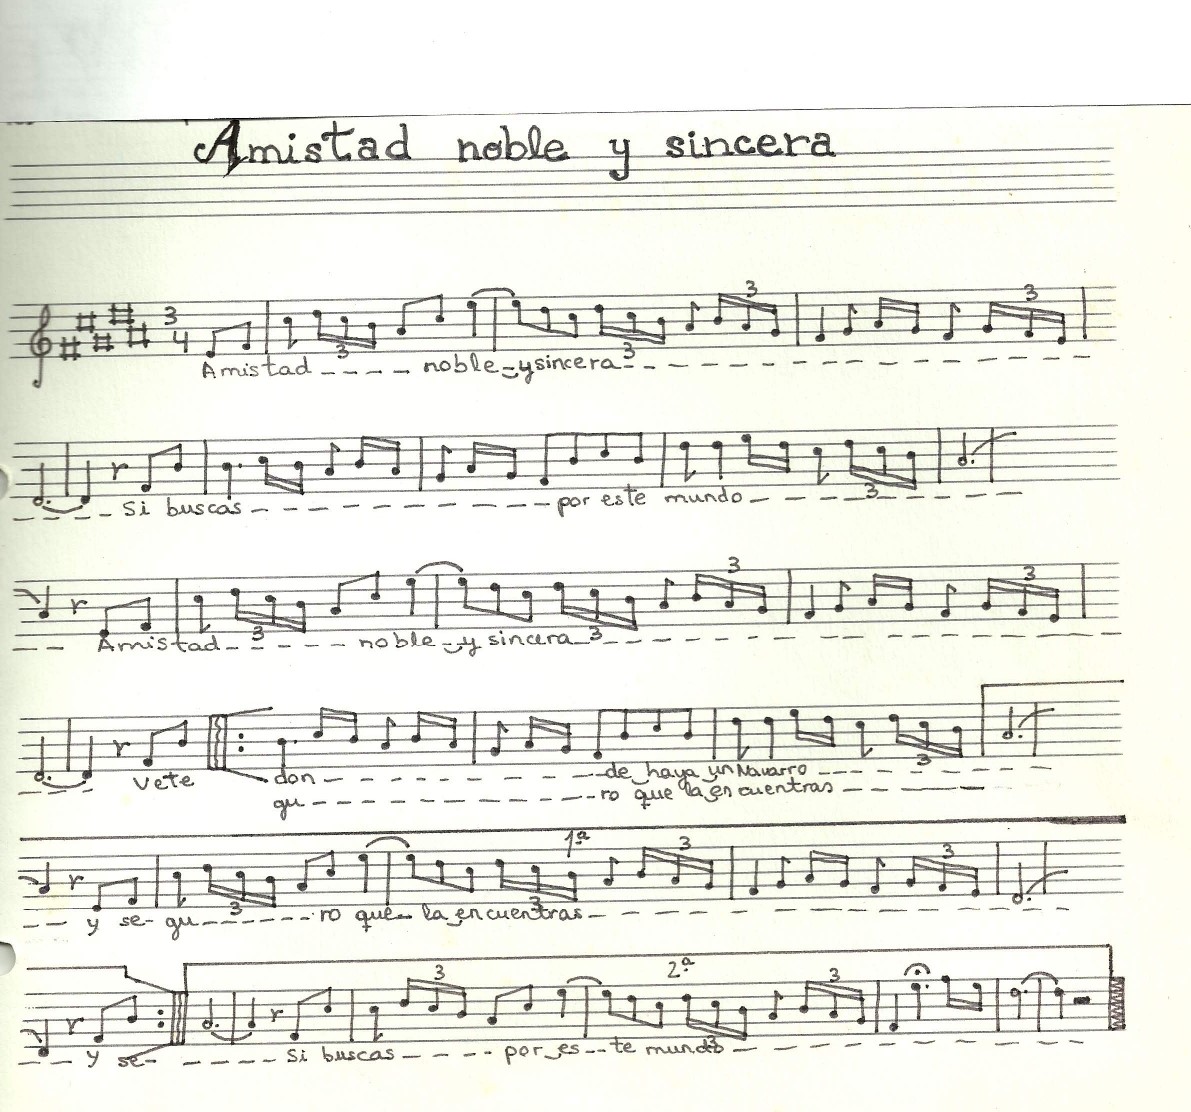 Amistad noble y sincera
3
4
3 3
3 3
Amistad ---- noble-ysincera-- - - - - - - -
3
- - - - Si buscas - - - - - - - - - por este mundo - - - - - - -
3
3 3
3 3
- - Amistad- - - - - noble-y sincera - - - - - - - - -
3
Vete don - - - - - - - - de haya un Navarro - - - -
gu - - - - - - - - - ro que la en cuentras - - - -
1ª 3 3
3 3
- - y se- gu - - - - - - ro que- la en cuentras - - - - - - - -
3 2ª 3
3
- - y se- - - - - Si buscas - - - - por es--te mundo - - - - - - -